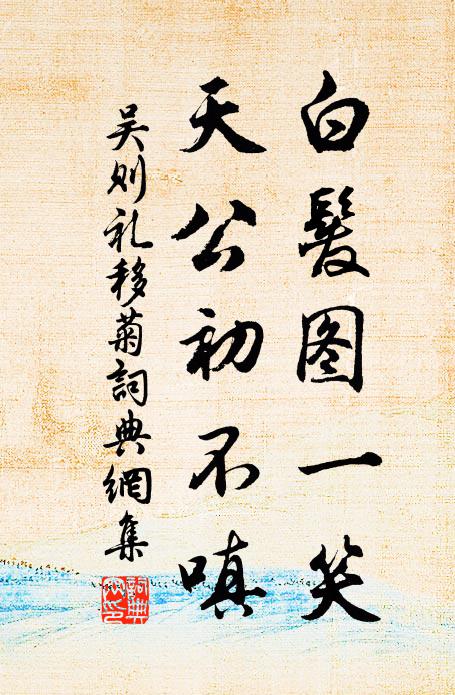 白髮图一笑
天公初不嗔
吴则礼移菊詞典網集